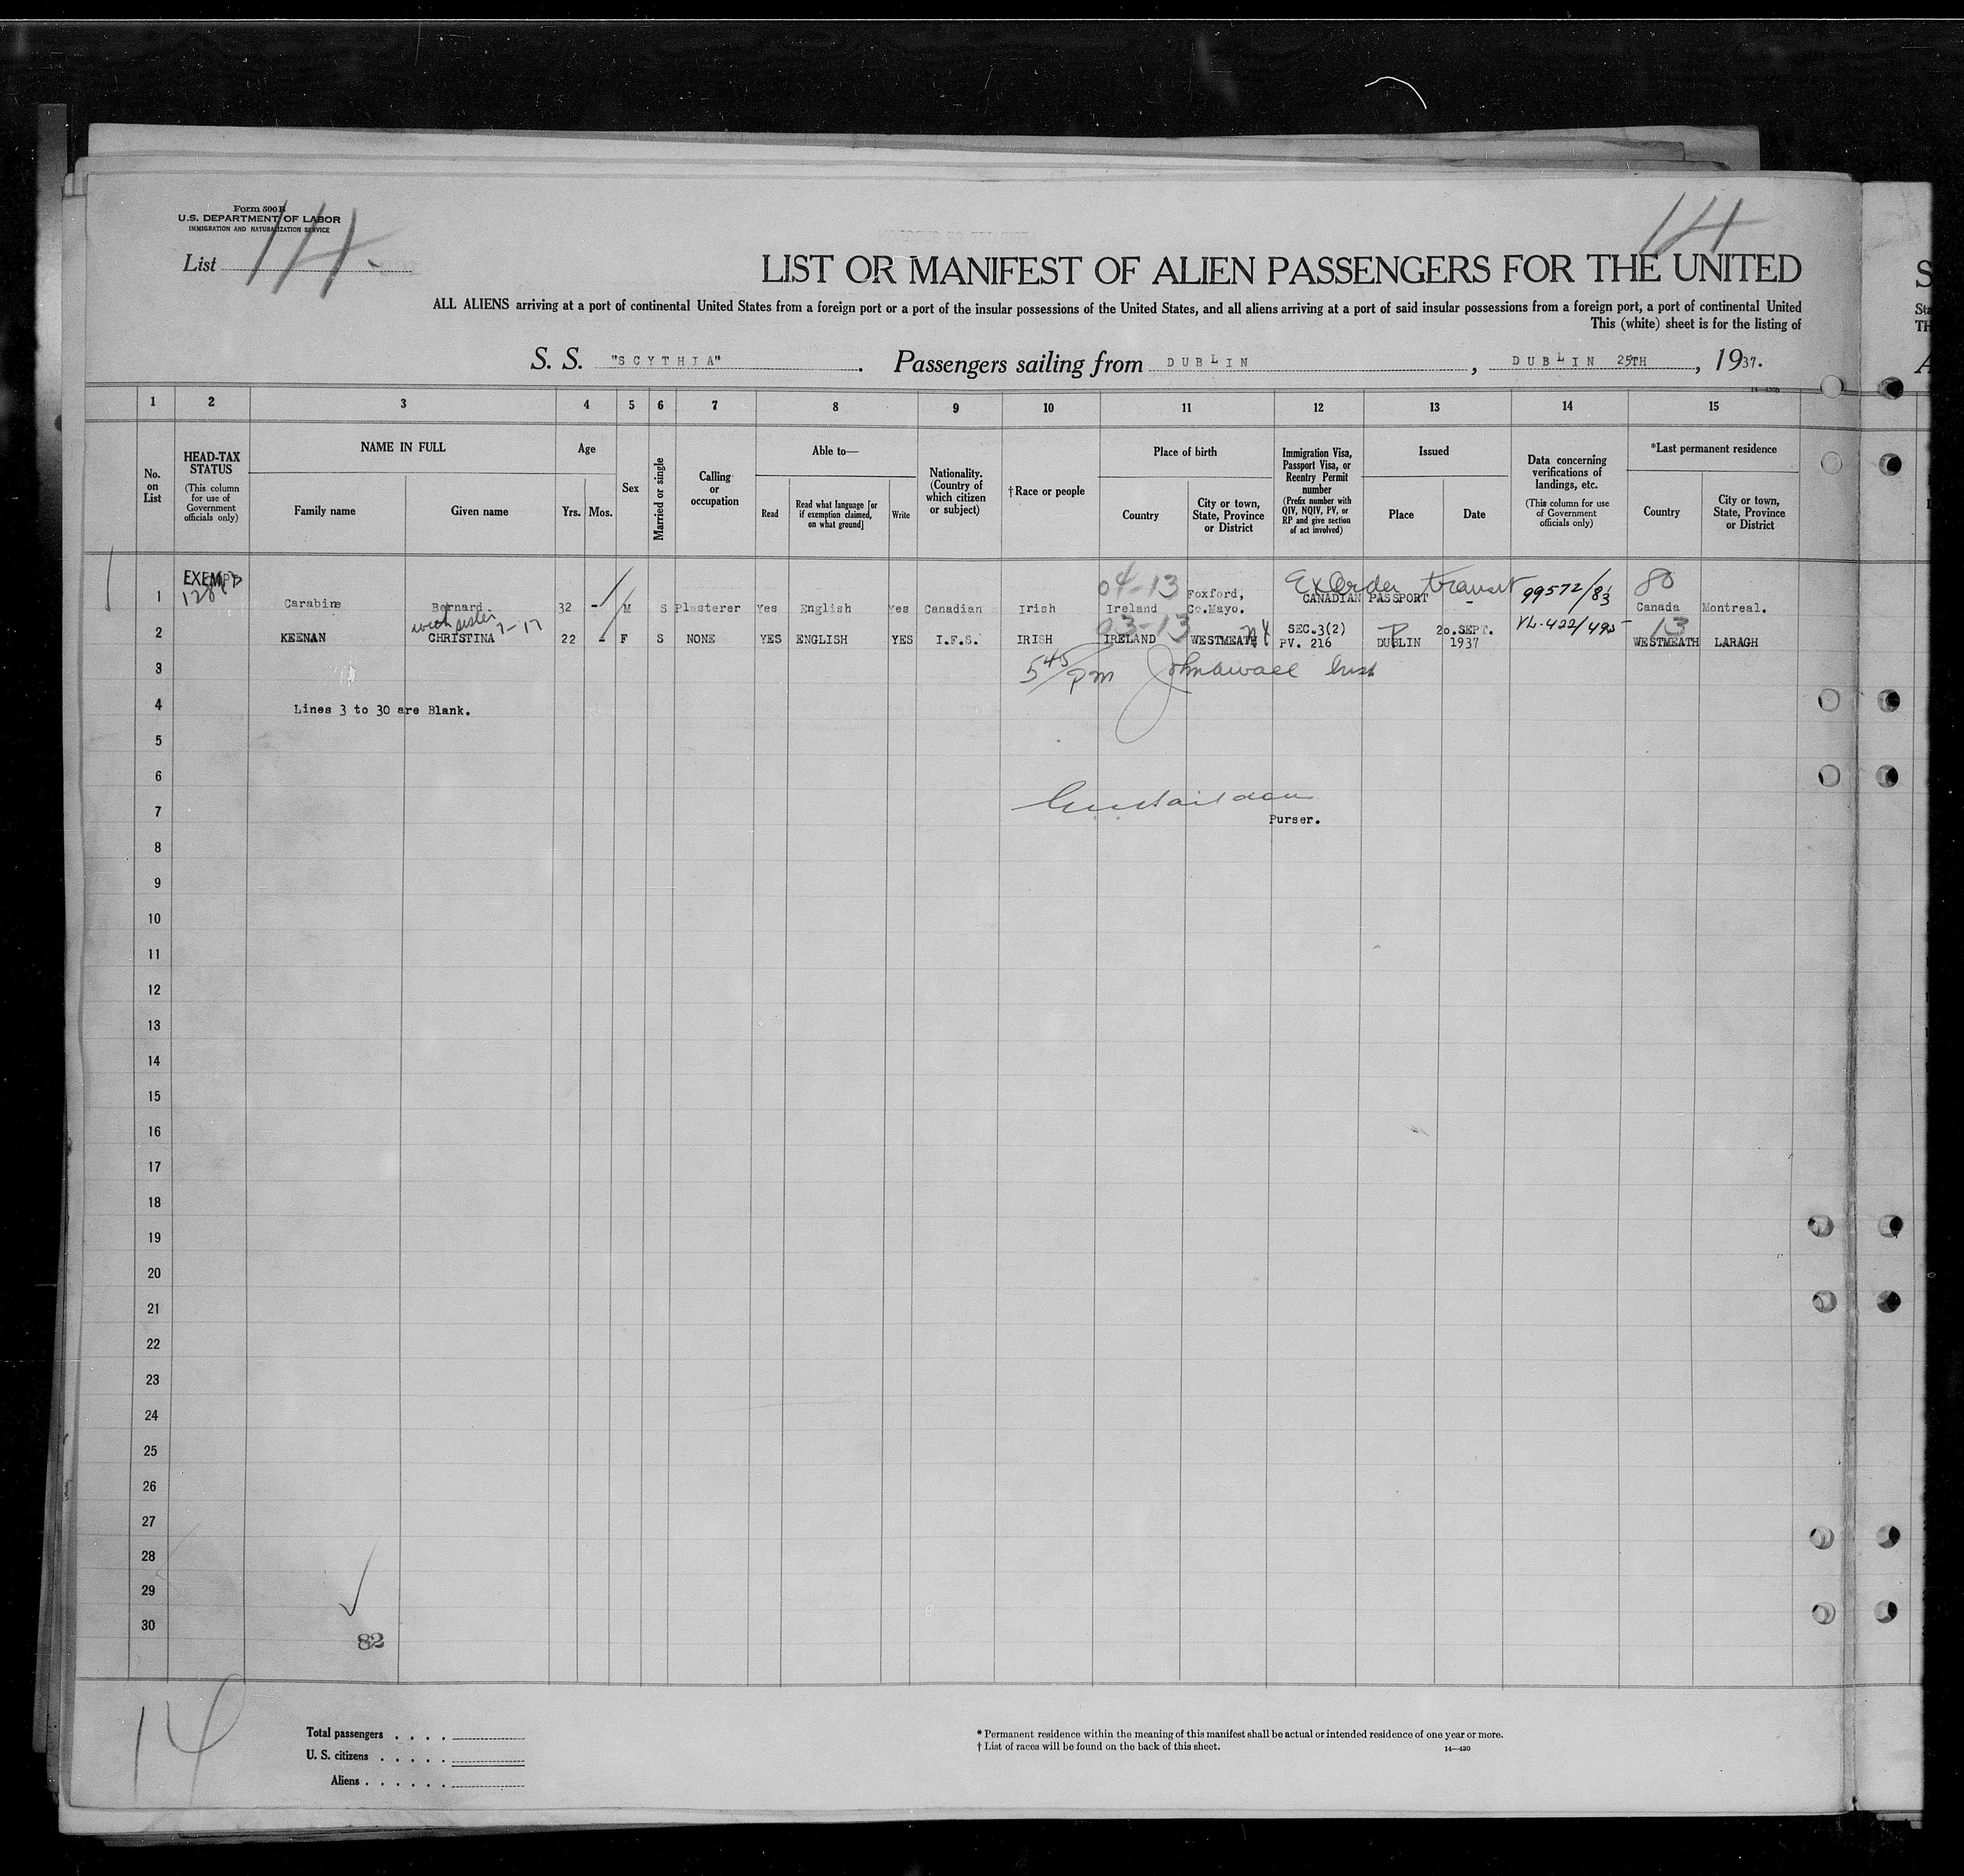 Form 500B
U.S. DEPARTMENT OF LABOR
IMMIGRATION AND NATURALIZATION SERVICE
List 14.
14
LIST OR MANIFEST OF ALIEN PASSENGERS FOR THE UNITED
ALL ALIENS arriving at a port of continental United States from a foreign port or a port of the insular possessions of the United States, and all aliens arriving at a port of said insular possessions from a foreign port, a port of continental United
This (white) sheet is for the listing of
S. S. "SCYTHIA". Passengers sailing from DUBLIN, DUBLIN 25TH, 1937.
1 2 3 4 5 6 7 8 9 10 11 12 13 14 15
No. on List
HEAD-TAX STATUS (This column for use of Government officials only)
NAME IN FULL
Family name
Given name
Age
Yrs. Mos.
Sex
Married or single
Calling or occupation
Able to—
Read
Read what language [or if exemption claimed, on what ground]
Write
Nationality. (Country of which citizen or subject)
†Race or people
Place of birth
Country
City or town, State, Province or District
Immigration Visa, Passport Visa, or Reentry Permit number (Prefix number with QIV, NQIV, PV, or RP and give section of act involved)
Issued
Place
Date
Data concerning verifications of landings, etc. (This column for use of Government officials only)
*Last permanent residence
Country
City or town, State, Province or District
EXEMPT 04-13 Foxford, Ex Order transit 99572/83 80
1 Carabine Bernard 32 - M S Plasterer Yes English Yes Canadian Irish Ireland Co.Mayo. CANADIAN PASSPORT - Canada Montreal.
with sister 7-17 03-13 SEC.3(2) 20.SEPT. 13
2 KEENAN CHRISTINA 22 - F S NONE YES ENGLISH YES I.F.S. IRISH IRELAND WESTMEATH PV. 216 DUBLIN 1937 WESTMEATH LARAGH
3 5 45/pm
4 Lines 3 to 30 are Blank.
5
6
7
Purser.
8
9
10
11
12
13
14
15
16
17
18
19
20
21
22
23
24
25
26
27
28
29
30
82
14
Total passengers . . . .
U. S. citizens . . . . .
Aliens . . . . . .
* Permanent residence within the meaning of this manifest shall be actual or intended residence of one year or more.
† List of races will be found on the back of this sheet.
14—430